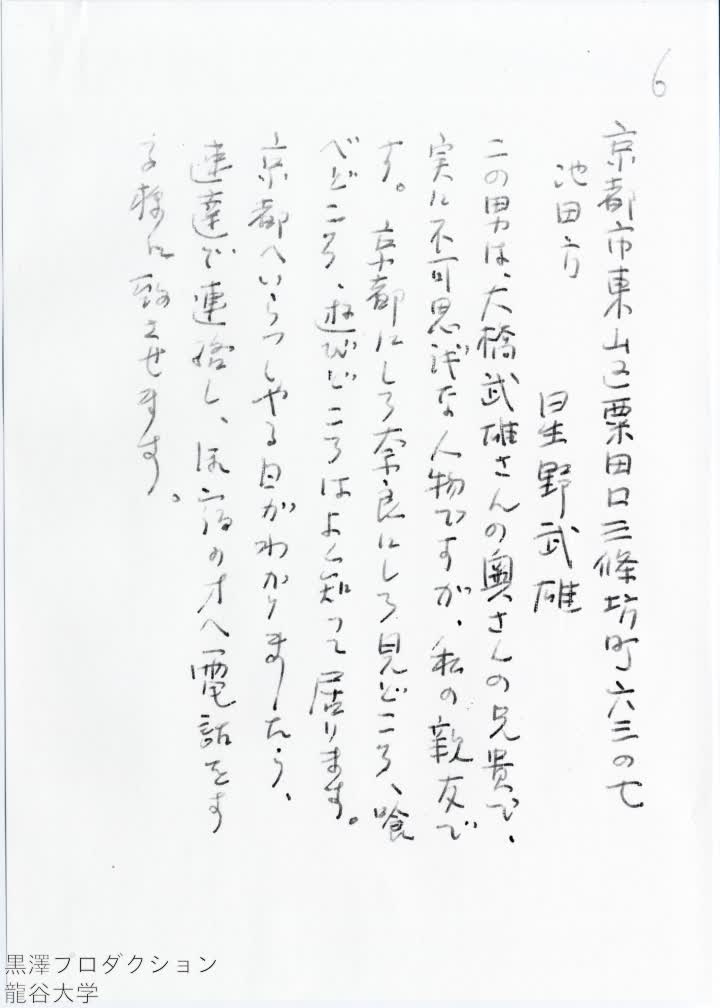 6
京都市東山区粟田口三條坊町六三の七
池田方
星野武雄
この男は、大橋武雄さんの奥さんの兄貴で、
実に不可思議な人物ですが、私の親友で
す。京都にしろ奈良にしろ見どころ、喰
べどころ、遊びどころはよく知って居ります。
京都へいらつしやる日がわかりましたら、
速達で連絡し、御宿の方へ電話をす
る様に致させます。
黒澤プロダクション
龍谷大学